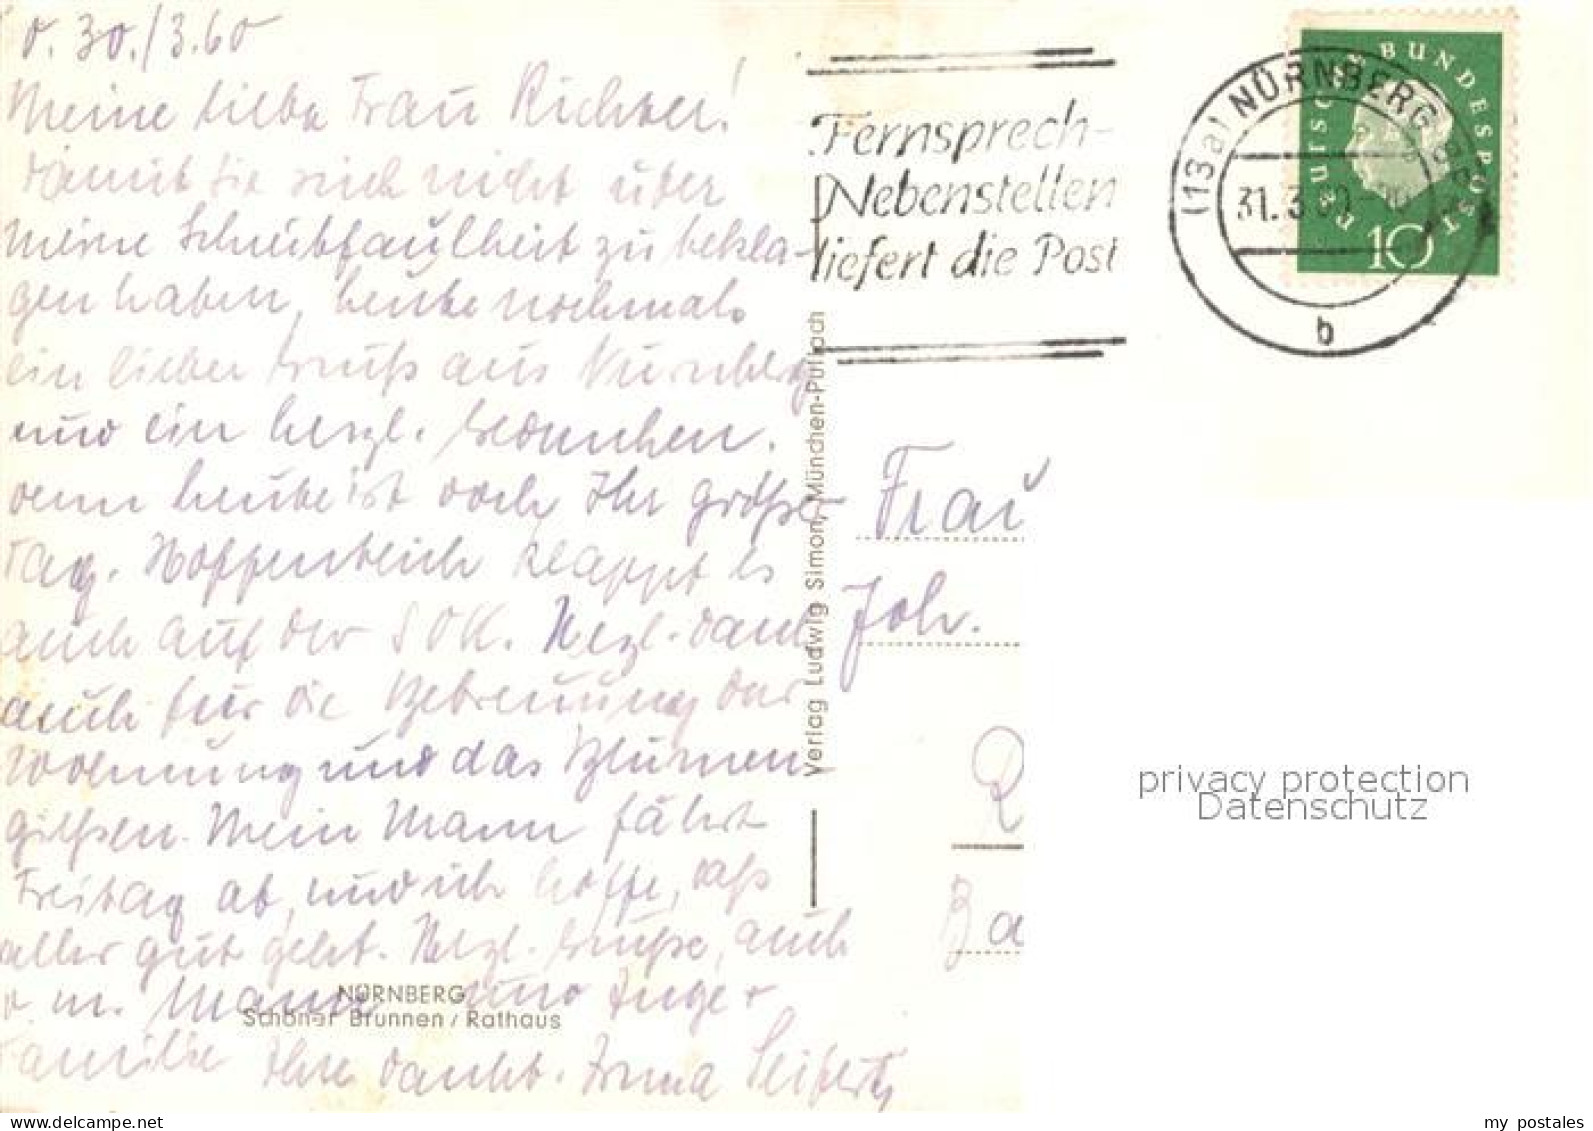 d. 30./3.60
Meine liebe Frau Richter!
Damit Sie sich nicht über
meine Schreibfaulheit zu bekla-
gen haben, heute nochmals
ein lieber Gruß aus Nürnberg
und ein herzl. Gedenken,
denn heute ist doch Ihr großer
Tag. Hoffentlich klappt es
auch auf der SOK. Herzl. Dank
auch für die Betreuung der
Wohnung und das Blumen-
gießen. Mein Mann fährt
Freitag ab, und ich hoffe, daß
alles gut geht. Herzl. Grüße, auch
v. m. Mann und Inge
Familie Ihre dankb. Irma Seifert
NÜRNBERG
Schöner Brunnen / Rathaus
Verlag Ludwig Simon, München-Pullach
Fernsprech-
Nebenstellen
liefert die Post
(13a) NÜRNBERG
31.3.60
b
DEUTSCHE BUNDESPOST
10
Frau
Joh.
R
Ba
privacy protection
Datenschutz
www.delcampe.net
my_postales